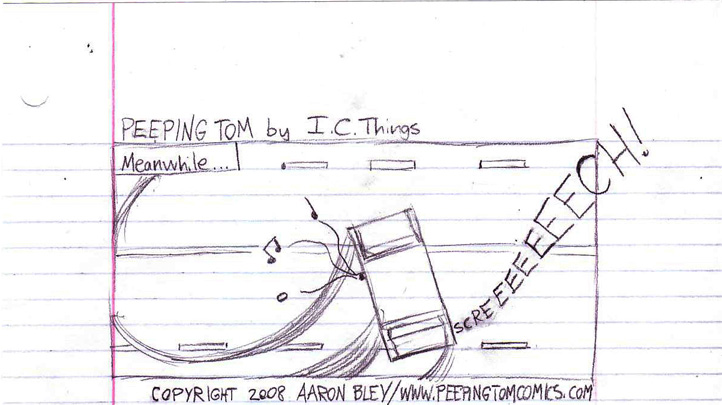 PEEPING TOM by I.C. Things
Meanwhile...
SCREEEEEEEECH!
COPYRIGHT 2008 AARON BLEY//WWW.PEEPINGTOMCOMICS.COM